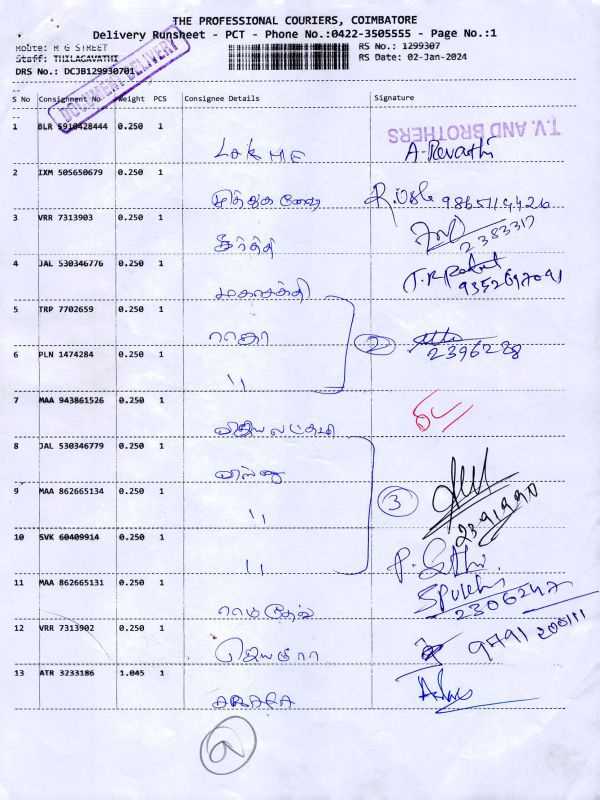 THE PROFESSIONAL COURIERS, COIMBATORE
Delivery Runsheet - PCT - Phone No.:0422-3505555 - Page No.:1
Route: M G STREET
RS No.: 1299307
Staff: THILAGAVATHI
RS Date: 02-Jan-2024
DRS No.: DCJB129930701
DOCUMENT DELIVERY
S No Consignment No Weight PCS Consignee Details Signature
T.V. AND BROTHERS
1 BLR 5910428444 0.250 1
A-Revathi
2 IXM 505650679 0.250 1
R.Usha 9865114426
3 VRR 7313903 0.250 1
2383317
4 JAL 530346776 0.250 1
மகாசக்தி
9352697091
5 TRP 7702659 0.250 1
ராஜா
2
2396228
6 PLN 1474284 0.250 1
"
7 MAA 943861526 0.250 1
விஜயலட்சுமி
8 JAL 530346779 0.250 1
9 MAA 862665134 0.250 1
"
3
2391990
10 SVK 60409914 0.250 1
"
11 MAA 862665131 0.250 1
ராமதேவ்
2306247
12 VRR 7313902 0.250 1
9791 200111
13 ATR 3233186 1.045 1